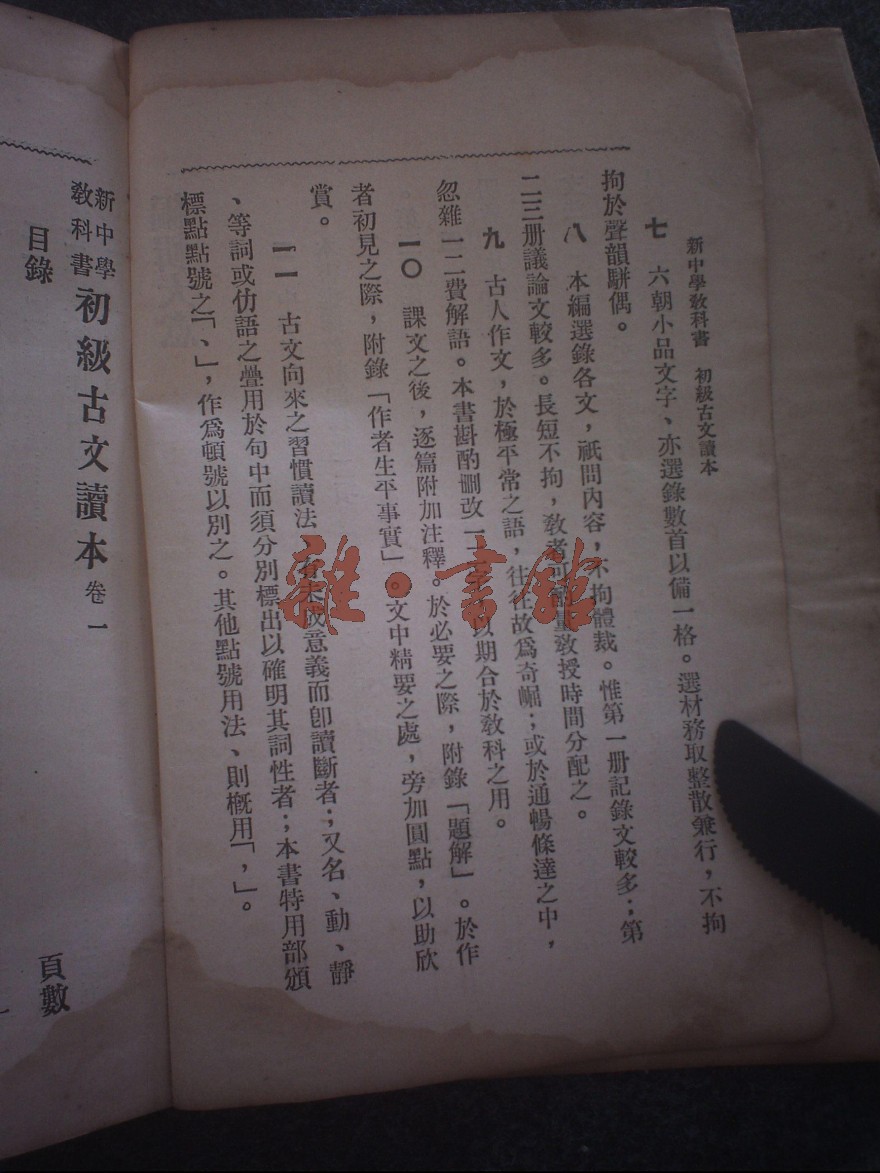 新中學教科書　初級古文讀本
七　六朝小品文字、亦選錄數首以備一格。選材務取整散兼行，不拘
拘於聲韻駢偶。
八　本編選錄各文，祇問內容，不拘體裁。惟第一册記錄文較多；第
二三册議論文較多。長短不拘，教者可酌量教授時間分配之。
九　古人作文，於極平常之語，往往故爲奇崛；或於通暢條達之中，
忽雜一二費解語。本書斟酌刪改一二，以期合於教科之用。
一〇　課文之後，逐篇附加注釋。於必要之際，附錄「題解」。於作
者初見之際，附錄「作者生平事實」。文中精要之處，旁加圓點，以助欣
賞。
一一　古文向來之習慣讀法、有未成意義而卽讀斷者；又名、動、靜
、等詞或仂語之疊用於句中而須分別標出以確明其詞性者；本書特用部頒
標點點號之「、」，作爲頓號以別之。其他點號用法、則槪用「，」。
新中學教科書 初級古文讀本 卷一
目錄
頁數
一
雜·書館